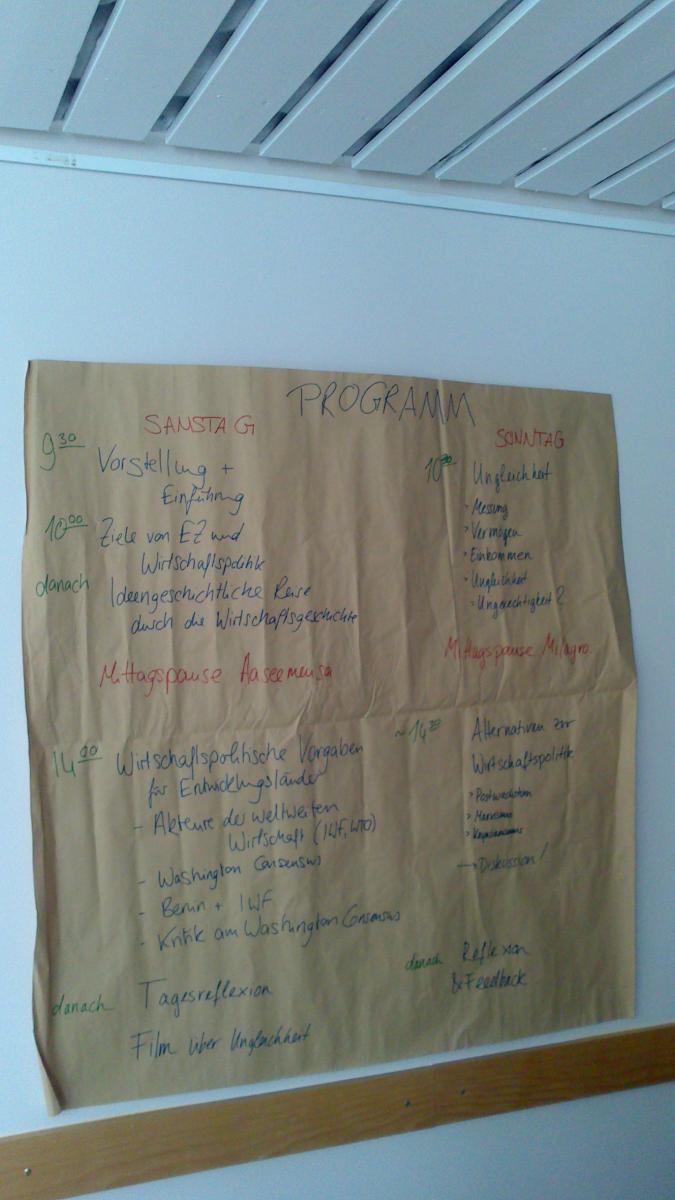 PROGRAMM
SAMSTAG
9 30 Vorstellung +
Einführung
10 00 Ziele von EZ und
Wirtschaftspolitik
danach Ideengeschichtliche Reise
durch die Wirtschaftsgeschichte
Mittagspause Aaseemensa
14 00 Wirtschaftspolitische Vorgaben
für Entwicklungsländer
- Akteure der weltweiten
Wirtschaft (IWF, WTO)
- Washington Consensus
- Benin + IWF
- Kritik am Washington Consensus
danach Tagesreflexion
Film über Ungleichheit
SONNTAG
10 Ungleichheit
> Messung
> Vermögen
> Einkommen
> Ungleichheit
= Ungerechtigkeit?
Mittagspause Milagro
~ 14 Alternativen zur
Wirtschaftspolitik
> Postwachstum
> Marxismus
> Keynesianismus
→ Diskussion!
danach Reflexion
& Feedback